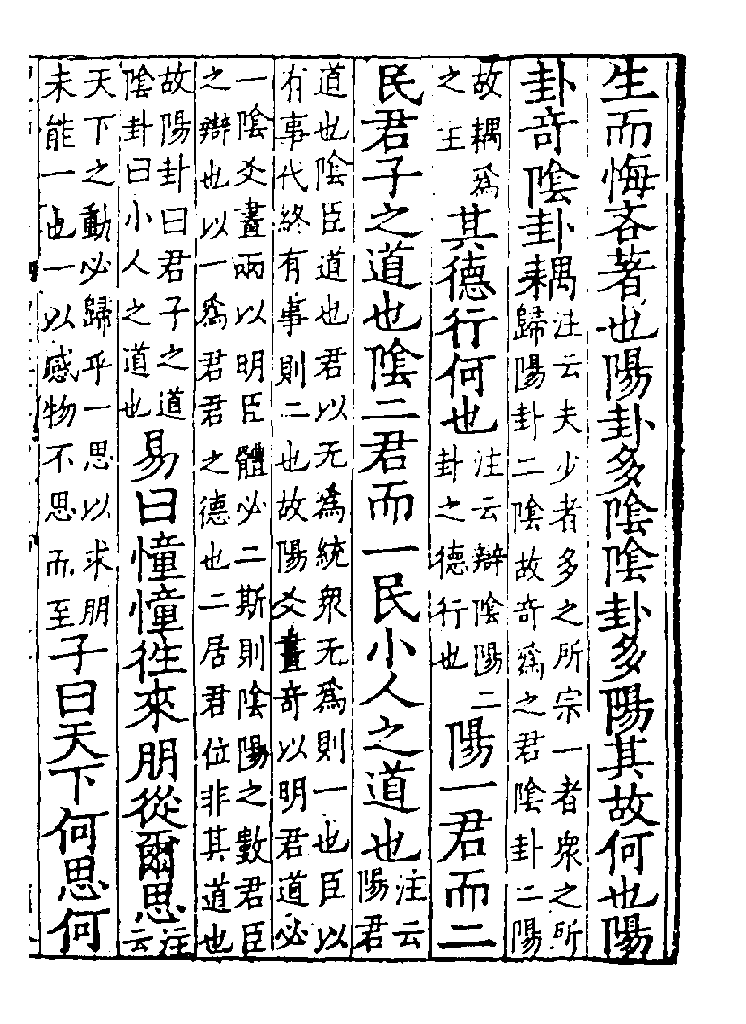 生而悔吝著也陽卦多陰陰卦多陽其故何也陽
卦奇陰卦耦
注云夫少者多之所宗一者衆之所
歸陽卦二陰故奇爲之君陰卦二陽
故耦爲
之主
其德行何也
注云辯陰陽二
卦之德行也
陽一君而二
民君子之道也陰二君而一民小人之道也
注云
陽君
道也陰臣道也君以无爲統衆无爲則一也臣以
有事代終有事則二也故陽爻畫奇以明君道必
一陰爻畫兩以明臣體必二斯則陰陽之數君臣
之辯也以一爲君君之德也二居君位非其道也
故陽卦曰君子之道
陰卦曰小人之道也
易曰憧憧徃來朋從爾思
注
云
天下之動必歸乎一思以求朋
未能一也一以感物不思而至
子曰天下何思何